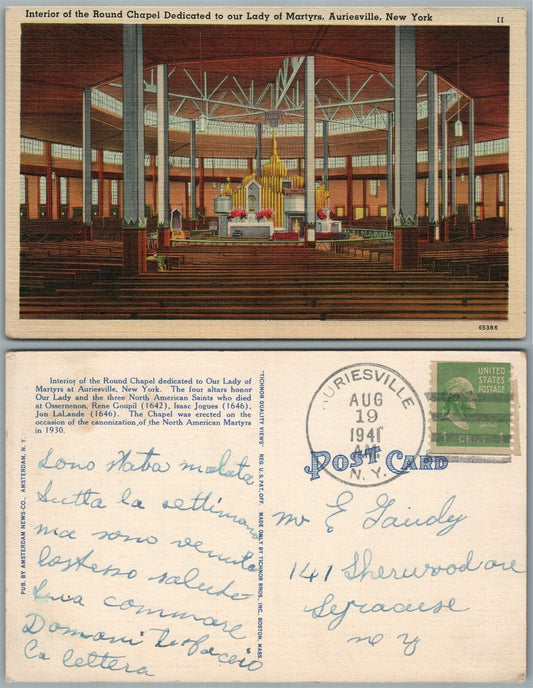 Interior of the Round Chapel Dedicated to our Lady of Martyrs, Auriesville, New York
11
65386
Interior of the Round Chapel dedicated to Our Lady of
Martyrs at Auriesville, New York. The four altars honor
Our Lady and the three North American Saints who died
at Ossernenon, Rene Goupil (1642), Isaac Jogues (1646),
Jon LaLande (1646). The Chapel was erected on the
occasion of the canonization of the North American Martyrs
in 1930.
Sono stata malata
tutta la settimana
ma sono venuta
lostesso saluti
tua commare
Domani
La lettera
PUB. BY AMSTERDAM NEWS CO., AMSTERDAM, N. Y.
"TICHNOR QUALITY VIEWS" REG. U. S. PAT. OFF. MADE ONLY BY TICHNOR BROS., INC., BOSTON, MASS.
AURIESVILLE
AUG
19
1941
AM
N.Y.
UNITED
STATES
POSTAGE
1 CENT 1
POST CARD
mr E Gaudy
141 Sherwood ave
Syracuse
N Y